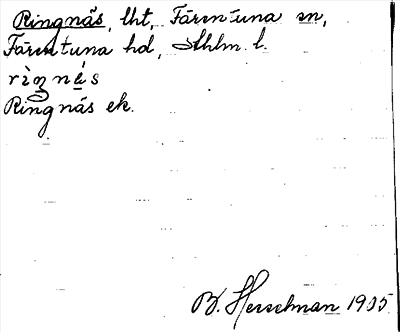 Ringnäs, lht, Färentuna sn,
Färentuna hd, Sthlm l.
Ringnäs ek.
B. Hesselman 1905